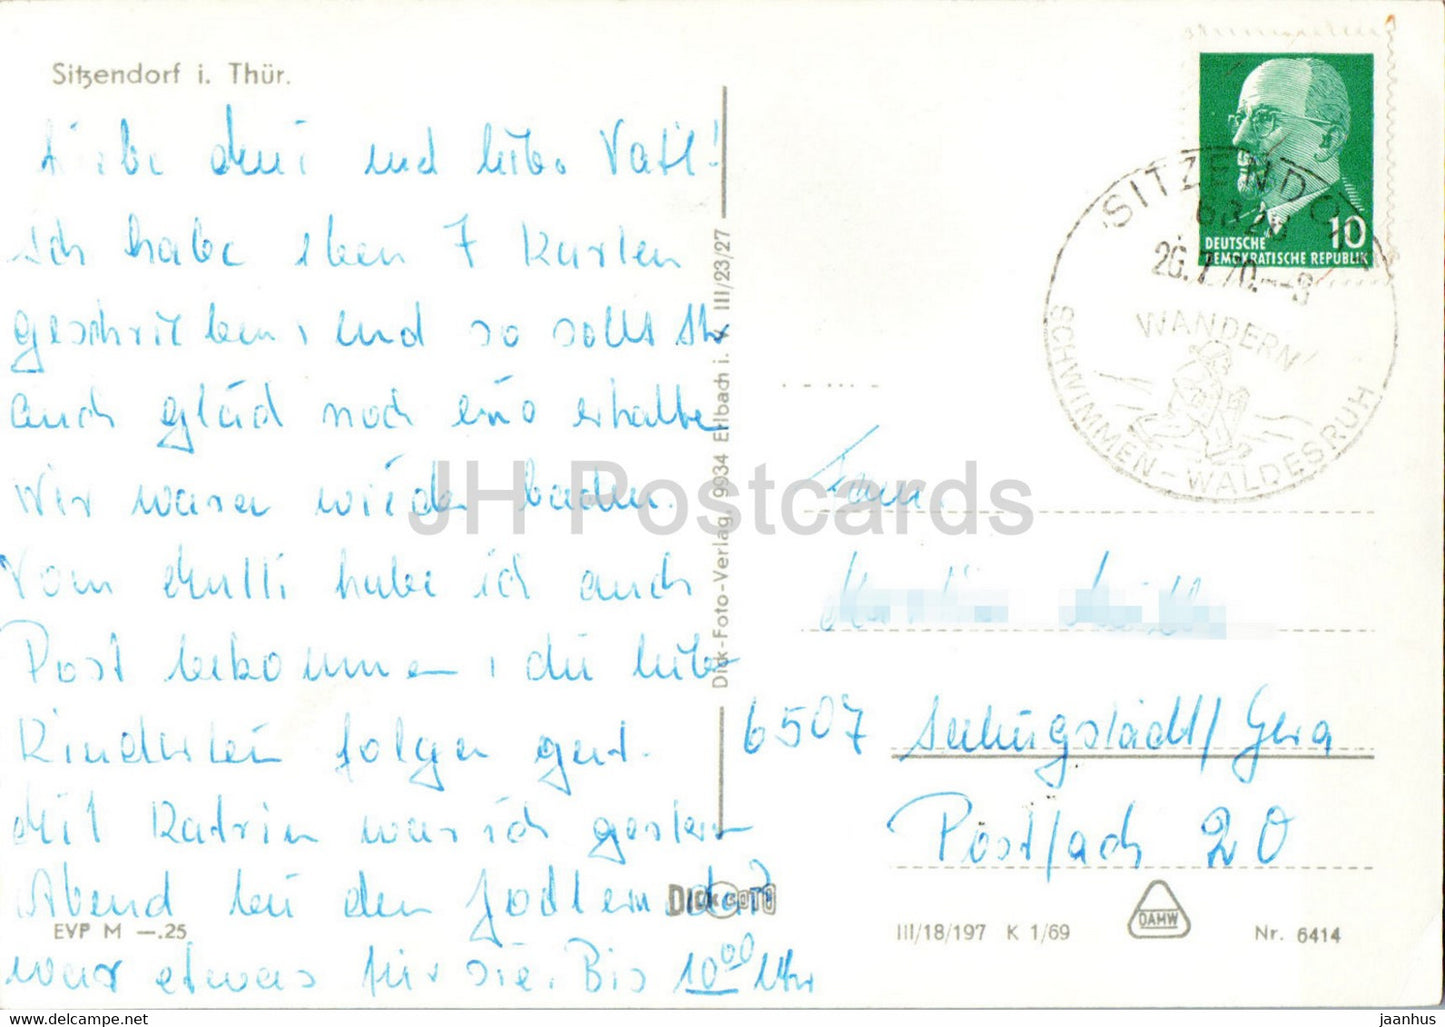 Sitzendorf i. Thür.
Liebe Mutti und liebe. Vati!
ich habe eben 7 Karten
geschrieben, und so sollt Ihr
auch gleich noch eine erhalte
Wir waren wieder baden.
Vom Mutti habe ich auch
Post bekommen, die liebe
Kinderlein folgen gut.
Mit Katrin war ich gestern
Abend bei den Jodlern das
war etwas für sie. Bis 10⁰⁰ Uhr
EVP M —.25
DICK FOTO
Dick-Foto-Verlag, 9934 Erlbach i. V. III/23/27
DEUTSCHE
DEMOKRATISCHE REPUBLIK
10
SITZENDORF
6828
26.7.70.--8
WANDERN
SCHWIMMEN-WALDESRUH
Fam.
6507 /Gera
Postfach 20
III/18/197 K 1/69
DAMW
Nr. 6414
JH Postcards
jaanhus
https://www.jhpostcards.com